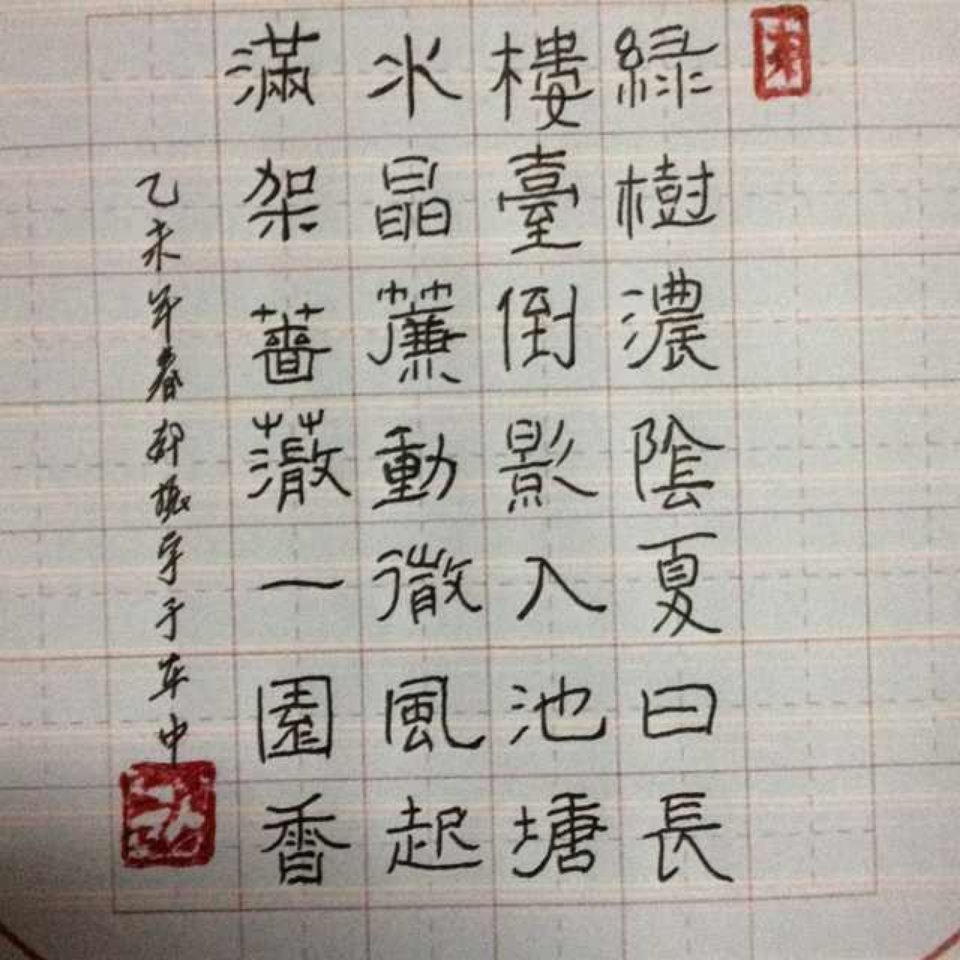 綠樹濃陰夏日長
樓臺倒影入池塘
水晶簾動微風起
滿架薔薇一園香
乙未年春郭振宇于車中